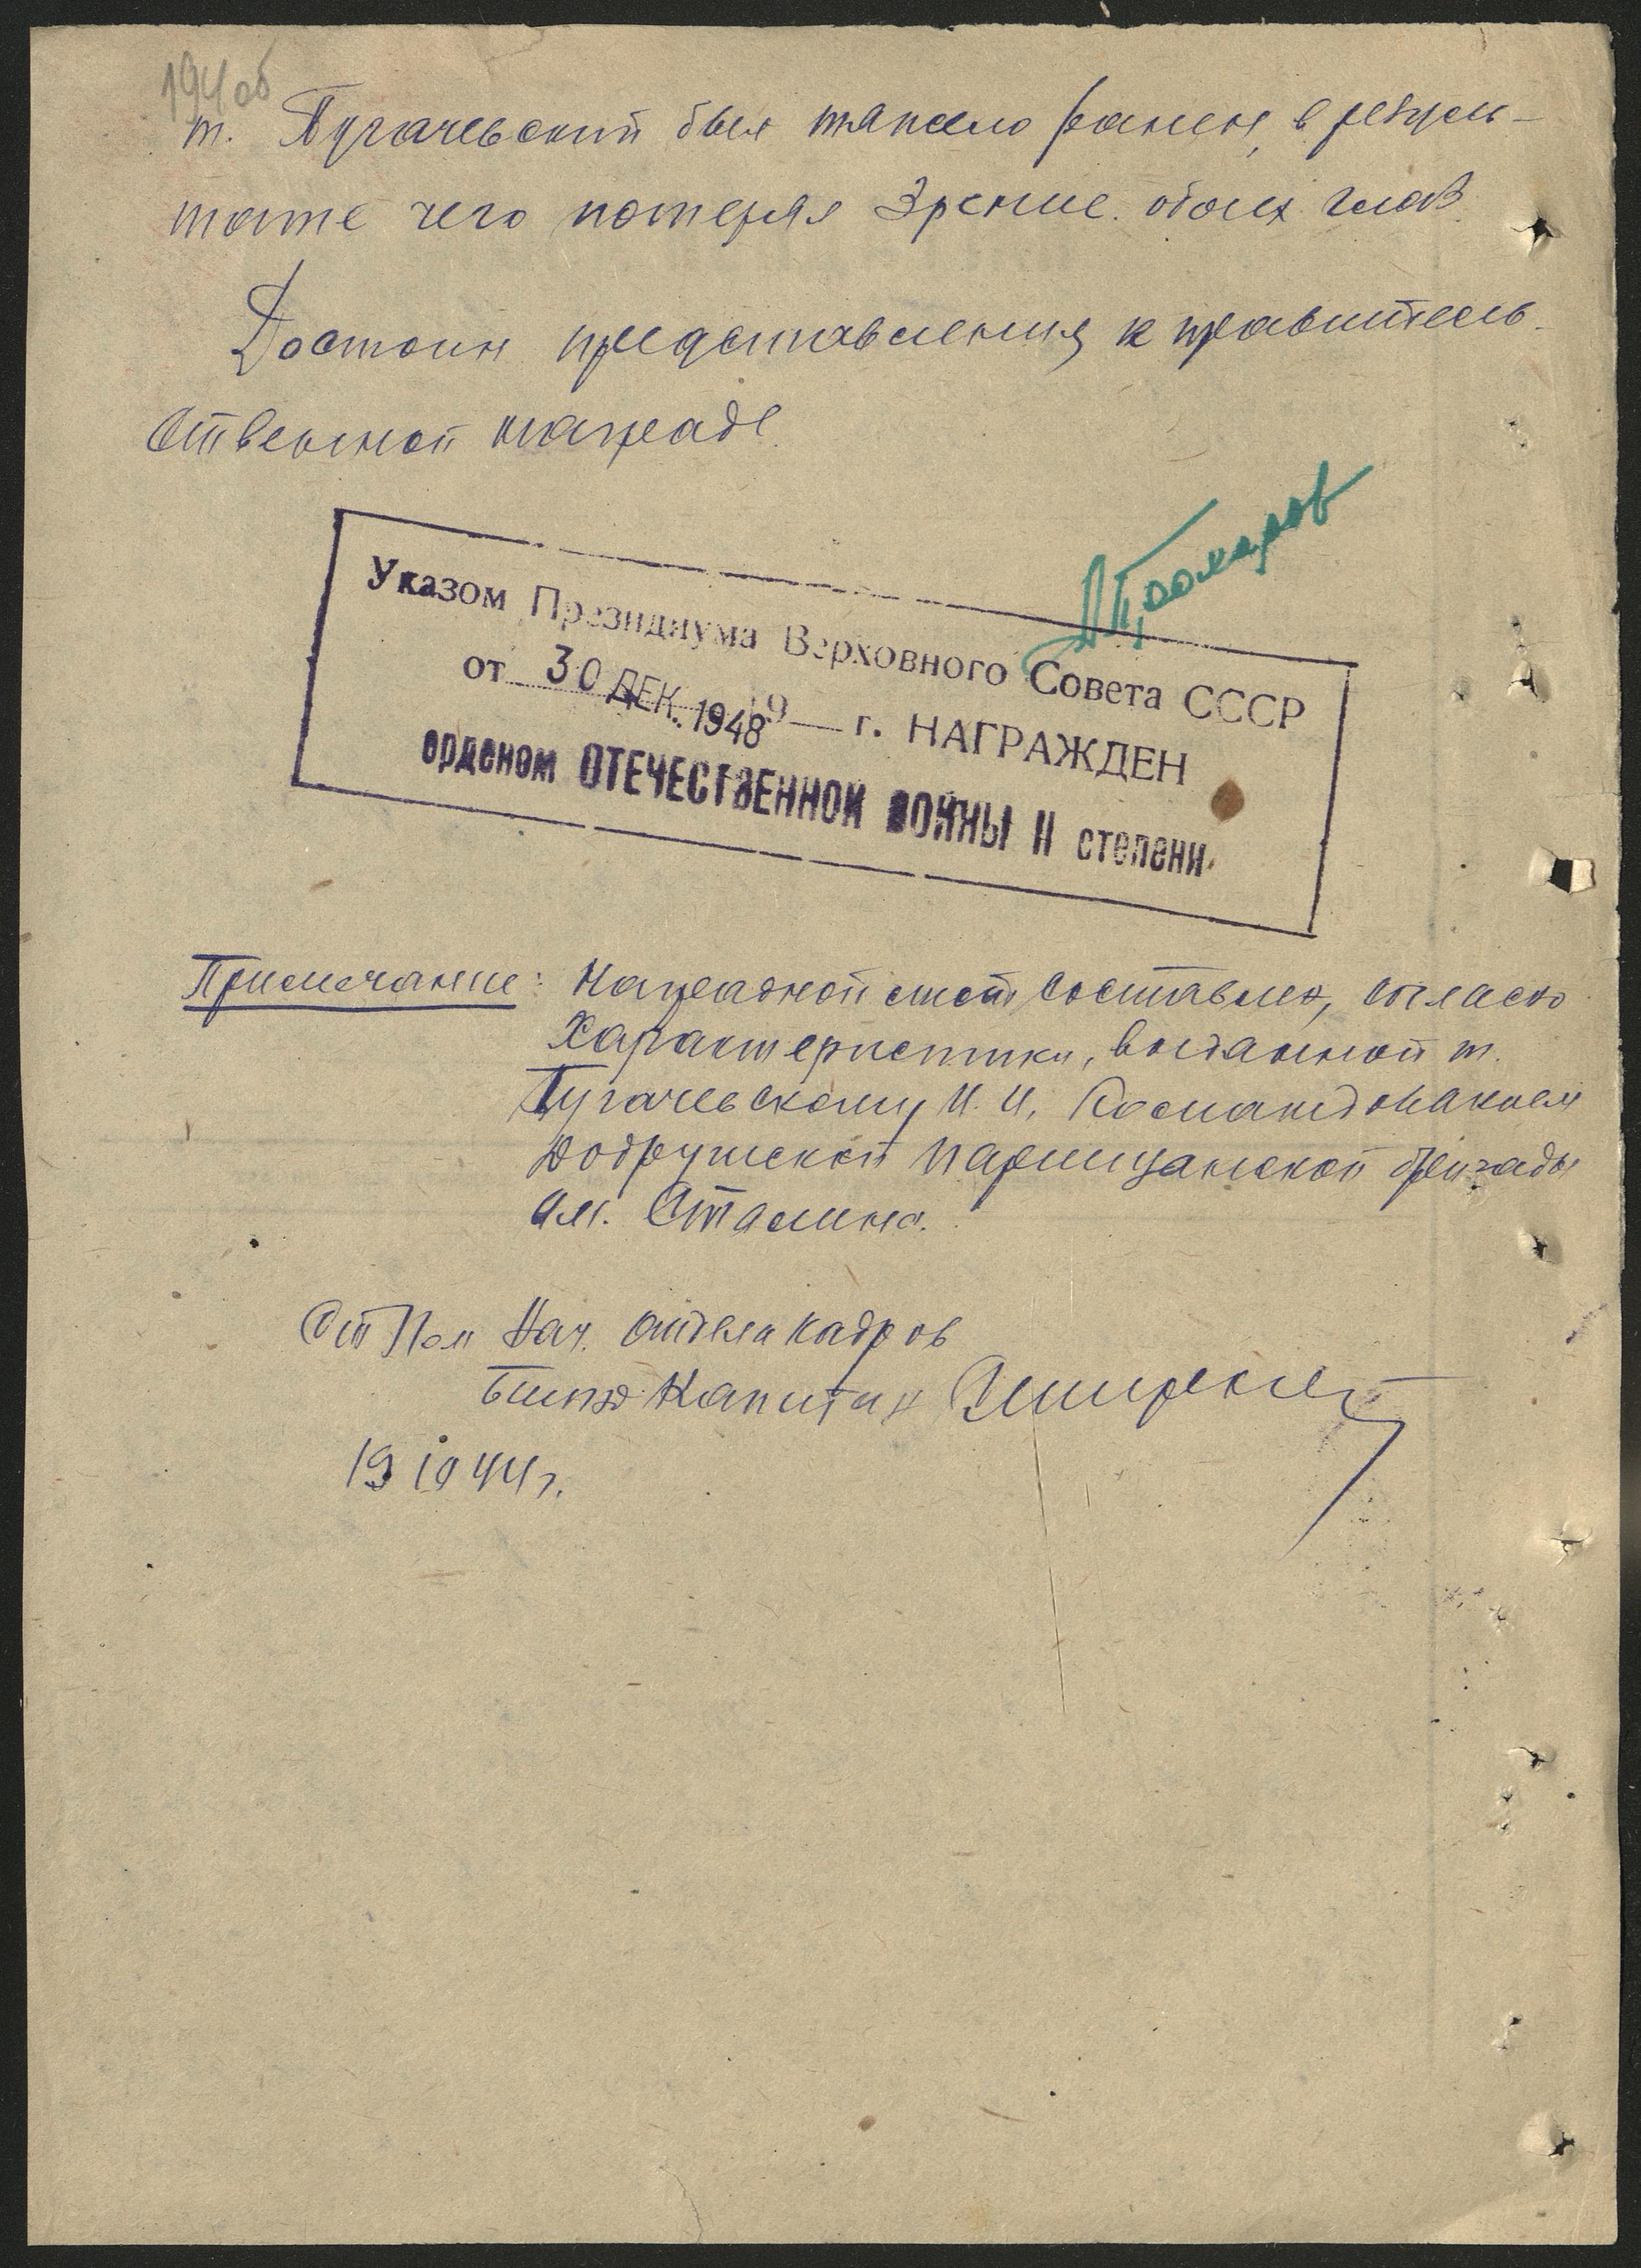 194 об
т. Пугачевский был тяжело ранен, в резуль-
тате чего потерял зрение обоих глаз.
Достоин представления к правитель-
ственной награде.
Указом Президиума Верховного Совета СССР
от 30 ДЕК. 1948 19 г. НАГРАЖДЕН
орденом ОТЕЧЕСТВЕННОЙ ВОЙНЫ II степени
Примечание: Наградной лист составлен, согласно
характеристики, выданной т.
Пугачевскому И. И. Командованием
Добрушской партизанской бригады
им. Сталина.
Ст Пом Нач. отдела кадров
БШПД Капитан